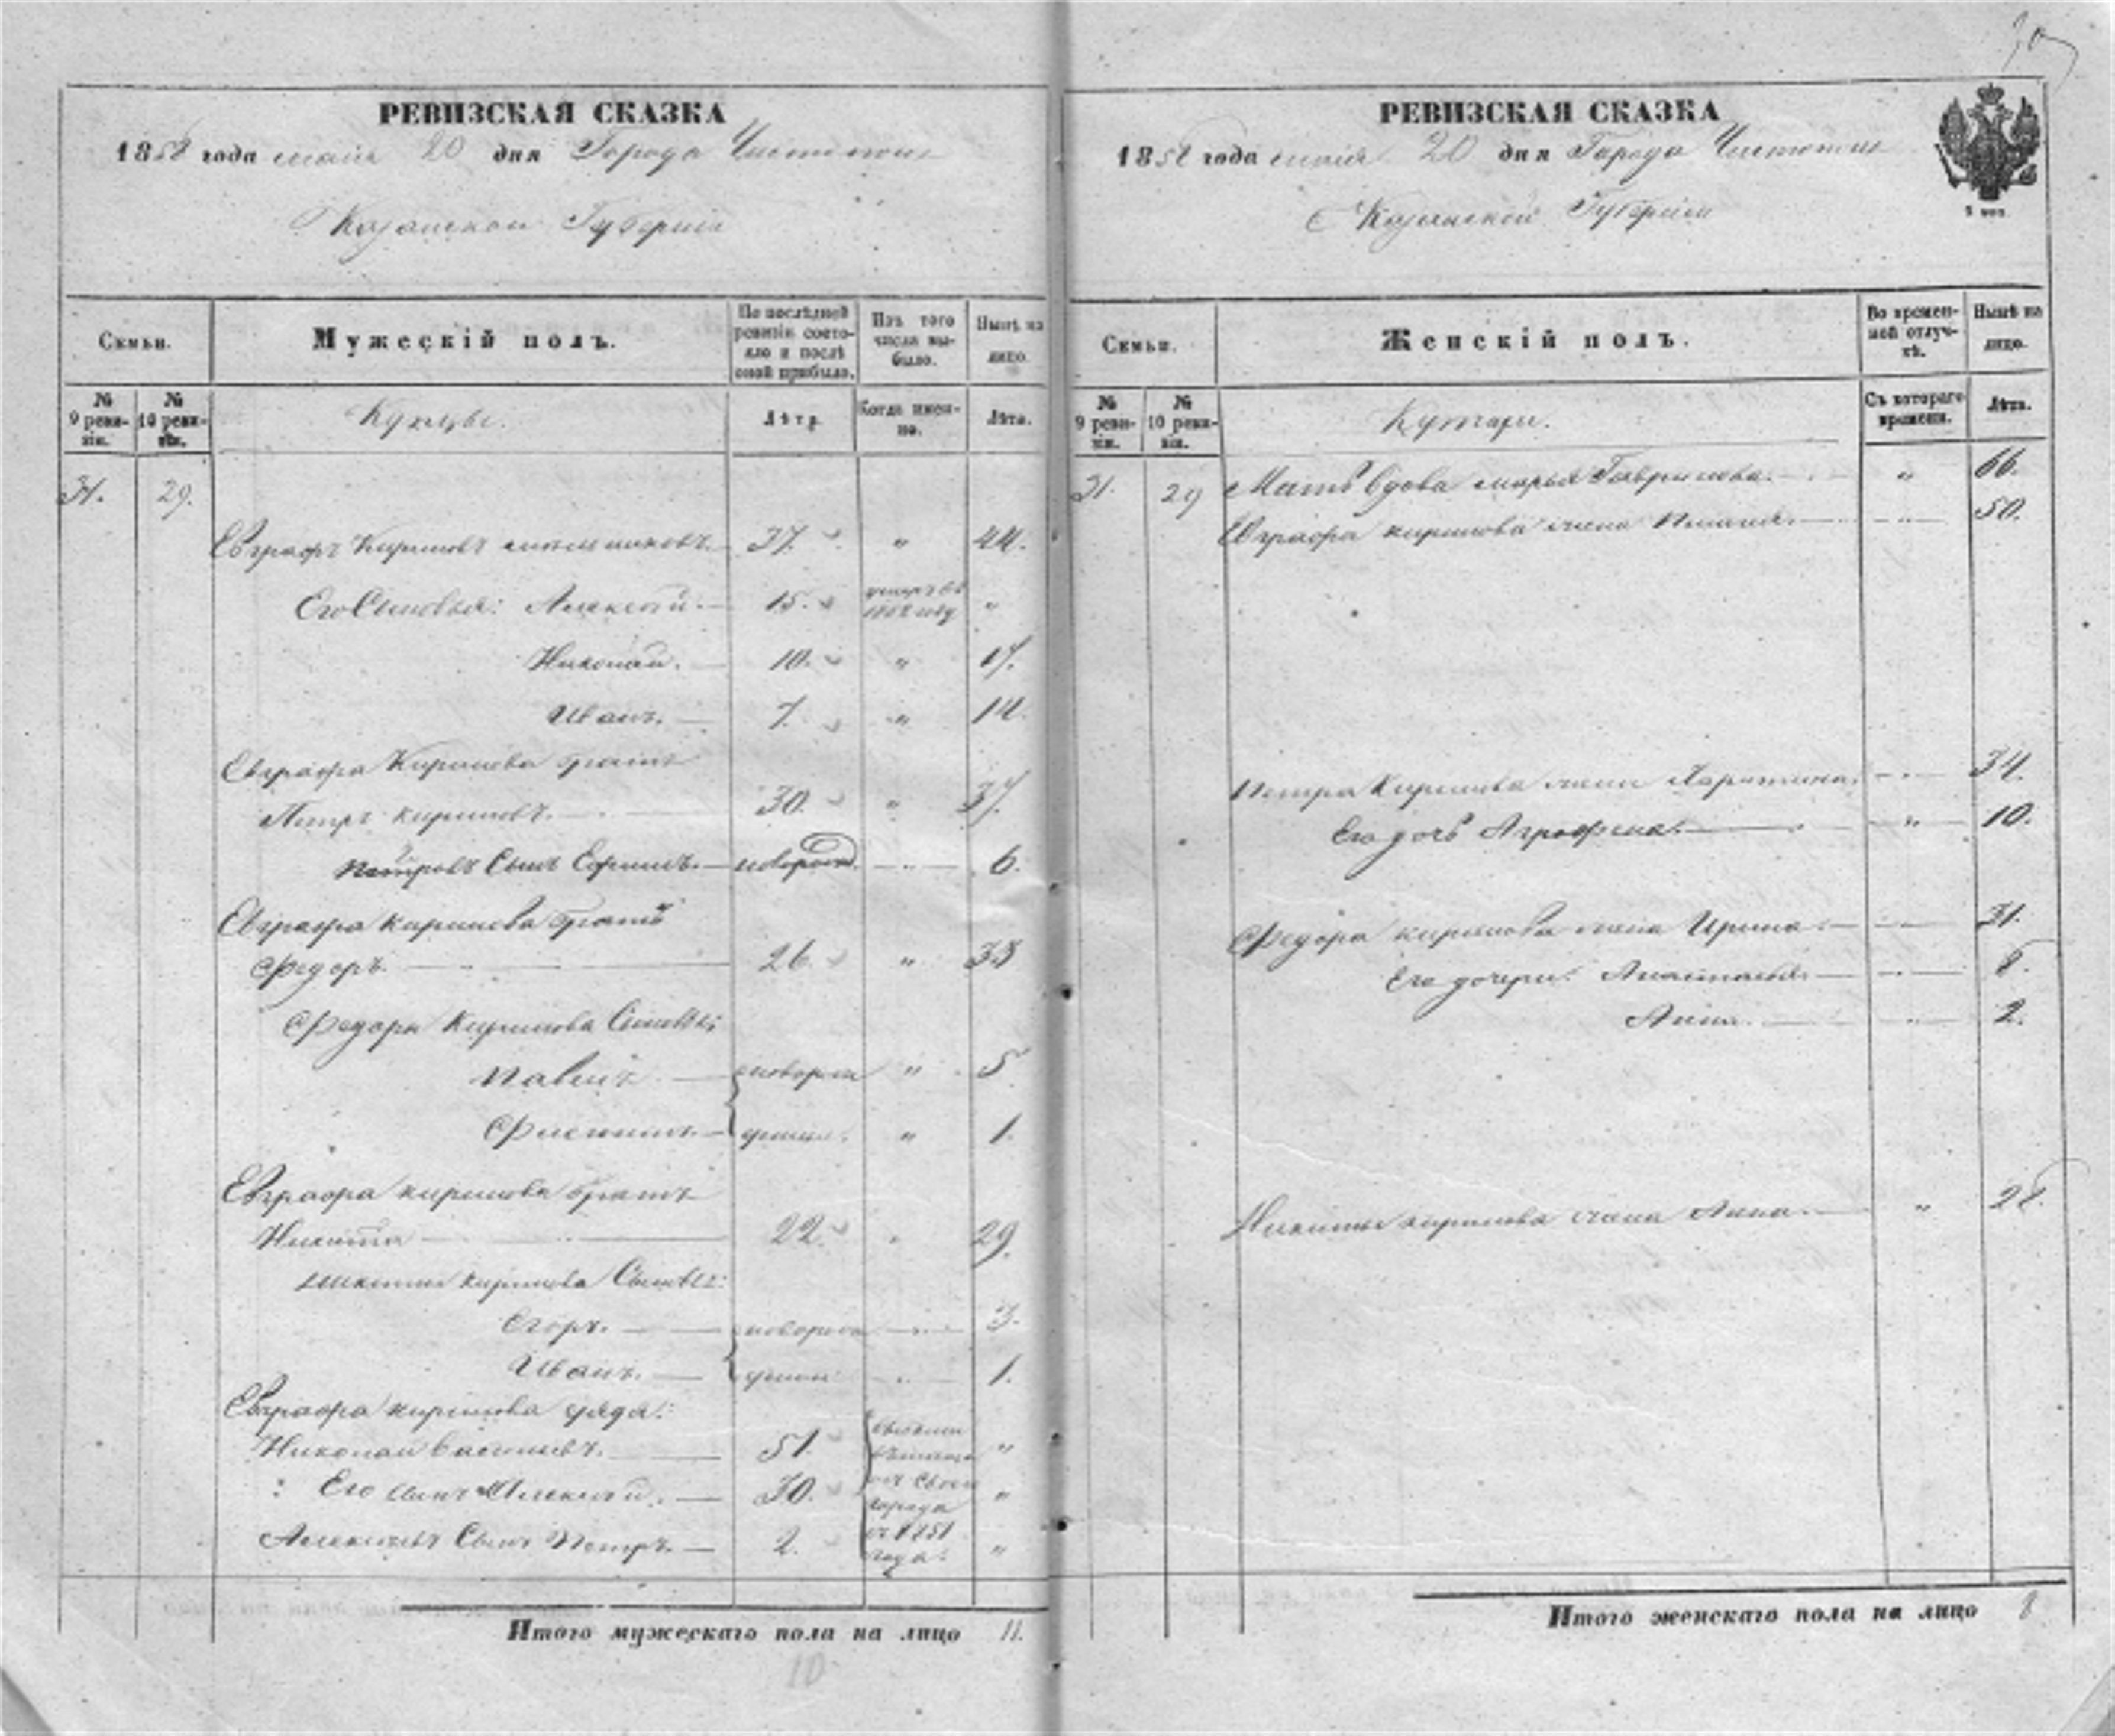 РЕВИЗСКАЯ СКАЗКА
1858 года маія 20 дня Города Чистополя
Казанской Губерніи
Семьи.
Мужескій полъ.
По послѣдней ревизіи состояло и послѣ оной прибыло.
Изъ того числа выбыло.
Нынѣ на лицо.
№ 9 ревизіи.
№ 10 ревизіи.
Купцы.
Лѣта.
Когда именно.
Лѣта.
31. 29.
Евграфъ Кириловъ 37. " 44.
Его Сыновья: Алексѣй. 15. "
Николай. 10. " 17.
Иванъ. 7. " 14.
Евграфа Кирилова братъ
Петръ Кириловъ. 30. " 37.
Петровъ Сынъ Ефимъ. новорож. " 6.
Евграфа Кирилова братъ
Федоръ. 26. " 33
Федора Кирилова Сыновья:
Павелъ новорож " 5
1.
Евграфа Кирилова братъ
Никита 22. " 29.
Никиты Кирилова Сыновья:
Егоръ. новорож " 3.
Иванъ. " 1.
Евграфа Кирилова дядя:
Николай Васильевъ. 51. "
Его сынъ Алексѣй. 30. "
Алексѣевъ Сынъ Петръ. 2. "
города
съ 1851
года.
Итого мужескаго пола на лицо 11.
10
РЕВИЗСКАЯ СКАЗКА
1858 года маія 20 дня Города Чистополя
Казанской Губерніи
Семьи.
Женскій полъ.
Во временной отлучкѣ.
Нынѣ на лицо.
№ 9 ревизіи.
№ 10 ревизіи.
Съ котораго времени.
Лѣта.
31. 29 Мать вдова Марья Гаврилова. " 66.
Евграфа Кирилова жена " 50.
Петра Кирилова жена Харитина. " 34.
Его дочь Аграфена. " 10.
Федора Кирилова жена Ирина. " 31.
Его дочери: Анастасья. " 8.
Анна. " 2.
Никиты Кирилова жена Анна. " 28.
Итого женскаго пола на лицо 8